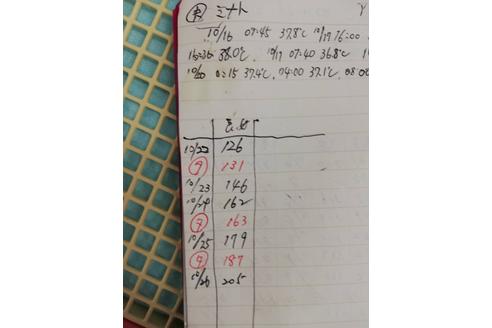 ミナト
10/16 07:45 37.8℃ 10/19 16:00
16:30 38.0℃, 10/17 07:40 36.8℃
10/20 0:15 37.4℃, 04:00 37.1℃, 08:00
10/22 126
夕 131
10/23 146
10/24 162
夕 163
10/25 179
夕 187
10/26 205